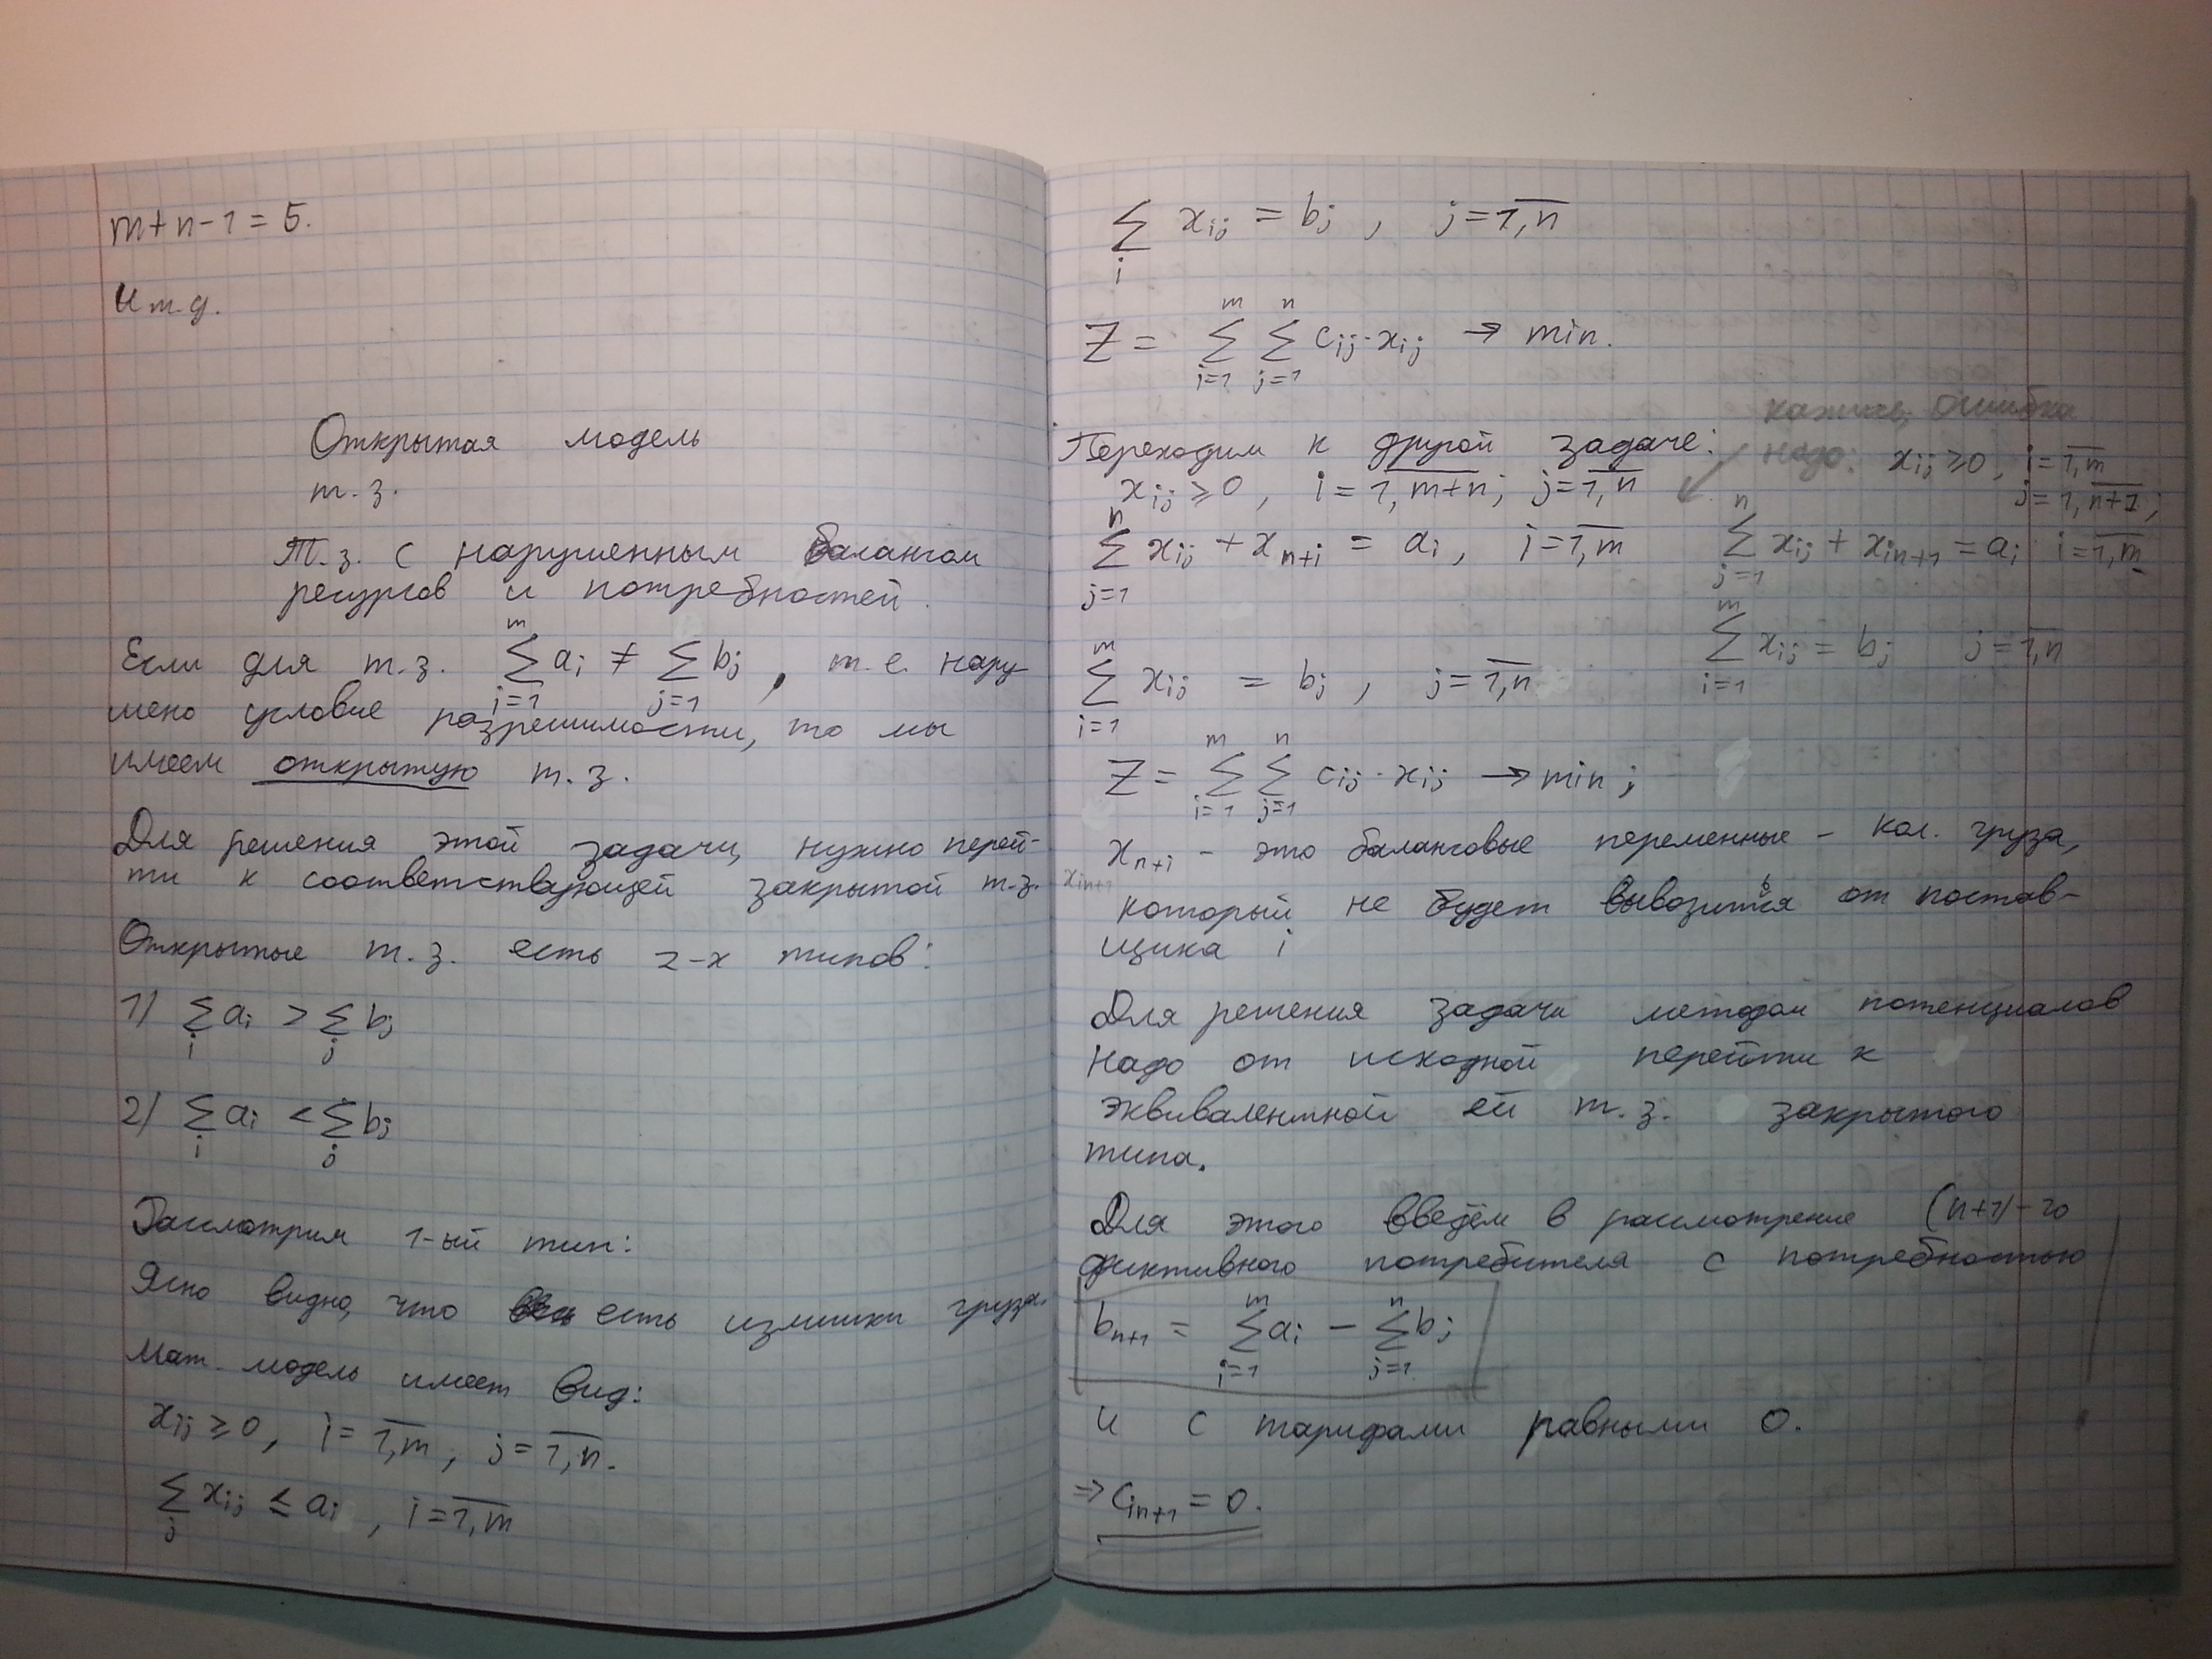 m+n-1 = 5.
И т.д.
Открытая модель
т.з.
Т.з. с нарушенным балансом
ресурсов и потребностей.
Если для т.з. \sum_{i=1}^{m} a_i ≠ \sum_{j=1} b_j, т.е. нару-
шено условие разрешимости, то мы
имеем открытую т.з.
Для решения этой задачи, нужно перей-
ти к соответствующей закрытой т.з.
Открытые т.з. есть 2-х типов:
1) \sum_i a_i > \sum_j b_j
2) \sum_i a_i < \sum_j b_j
Рассмотрим 1-ый тип:
Ясно видно, что есть излишки груза.
Мат. модель имеет вид:
x_{ij} ≥ 0, i = \overline{1,m}, j = \overline{1,n}.
\sum_j x_{ij} ≤ a_i, i = \overline{1,m}
\sum_i x_{ij} = b_j, j = \overline{1,n}
Z = \sum_{i=1}^{m} \sum_{j=1}^{n} c_{ij} · x_{ij} → min.
Переходим к другой задаче:
x_{ij} ≥ 0, i = \overline{1,m+n}; j = \overline{1,n}
\sum_{j=1}^{n} x_{ij} + x_{n+i} = a_i, i = \overline{1,m}
\sum_{i=1}^{m} x_{ij} = b_j, j = \overline{1,n}
ошибка
надо: x_{ij} ≥ 0, i = \overline{1,m}
j = \overline{1,n+1};
\sum_{j=1}^{n} x_{ij} + x_{in+1} = a_i i = \overline{1,m}
\sum_{i=1}^{m} x_{ij} = b_j j = \overline{1,n}
Z = \sum_{i=1}^{m} \sum_{j=1}^{n} c_{ij} · x_{ij} → min;
x_{n+i} - это балансовые переменные - кол. груза,
x_{in+1}
который не будет вывозиться от постав-
щика i
Для решения задачи методом потенциалов
надо от исходной перейти к
эквивалентной ей т.з. закрытого
типа.
Для этого введём в рассмотрение (n+1)-го
фиктивного потребителя с потребностью
b_{n+1} = \sum_{i=1}^{m} a_i - \sum_{j=1}^{n} b_j
и с тарифами равными 0.
⇒ c_{in+1} = 0.